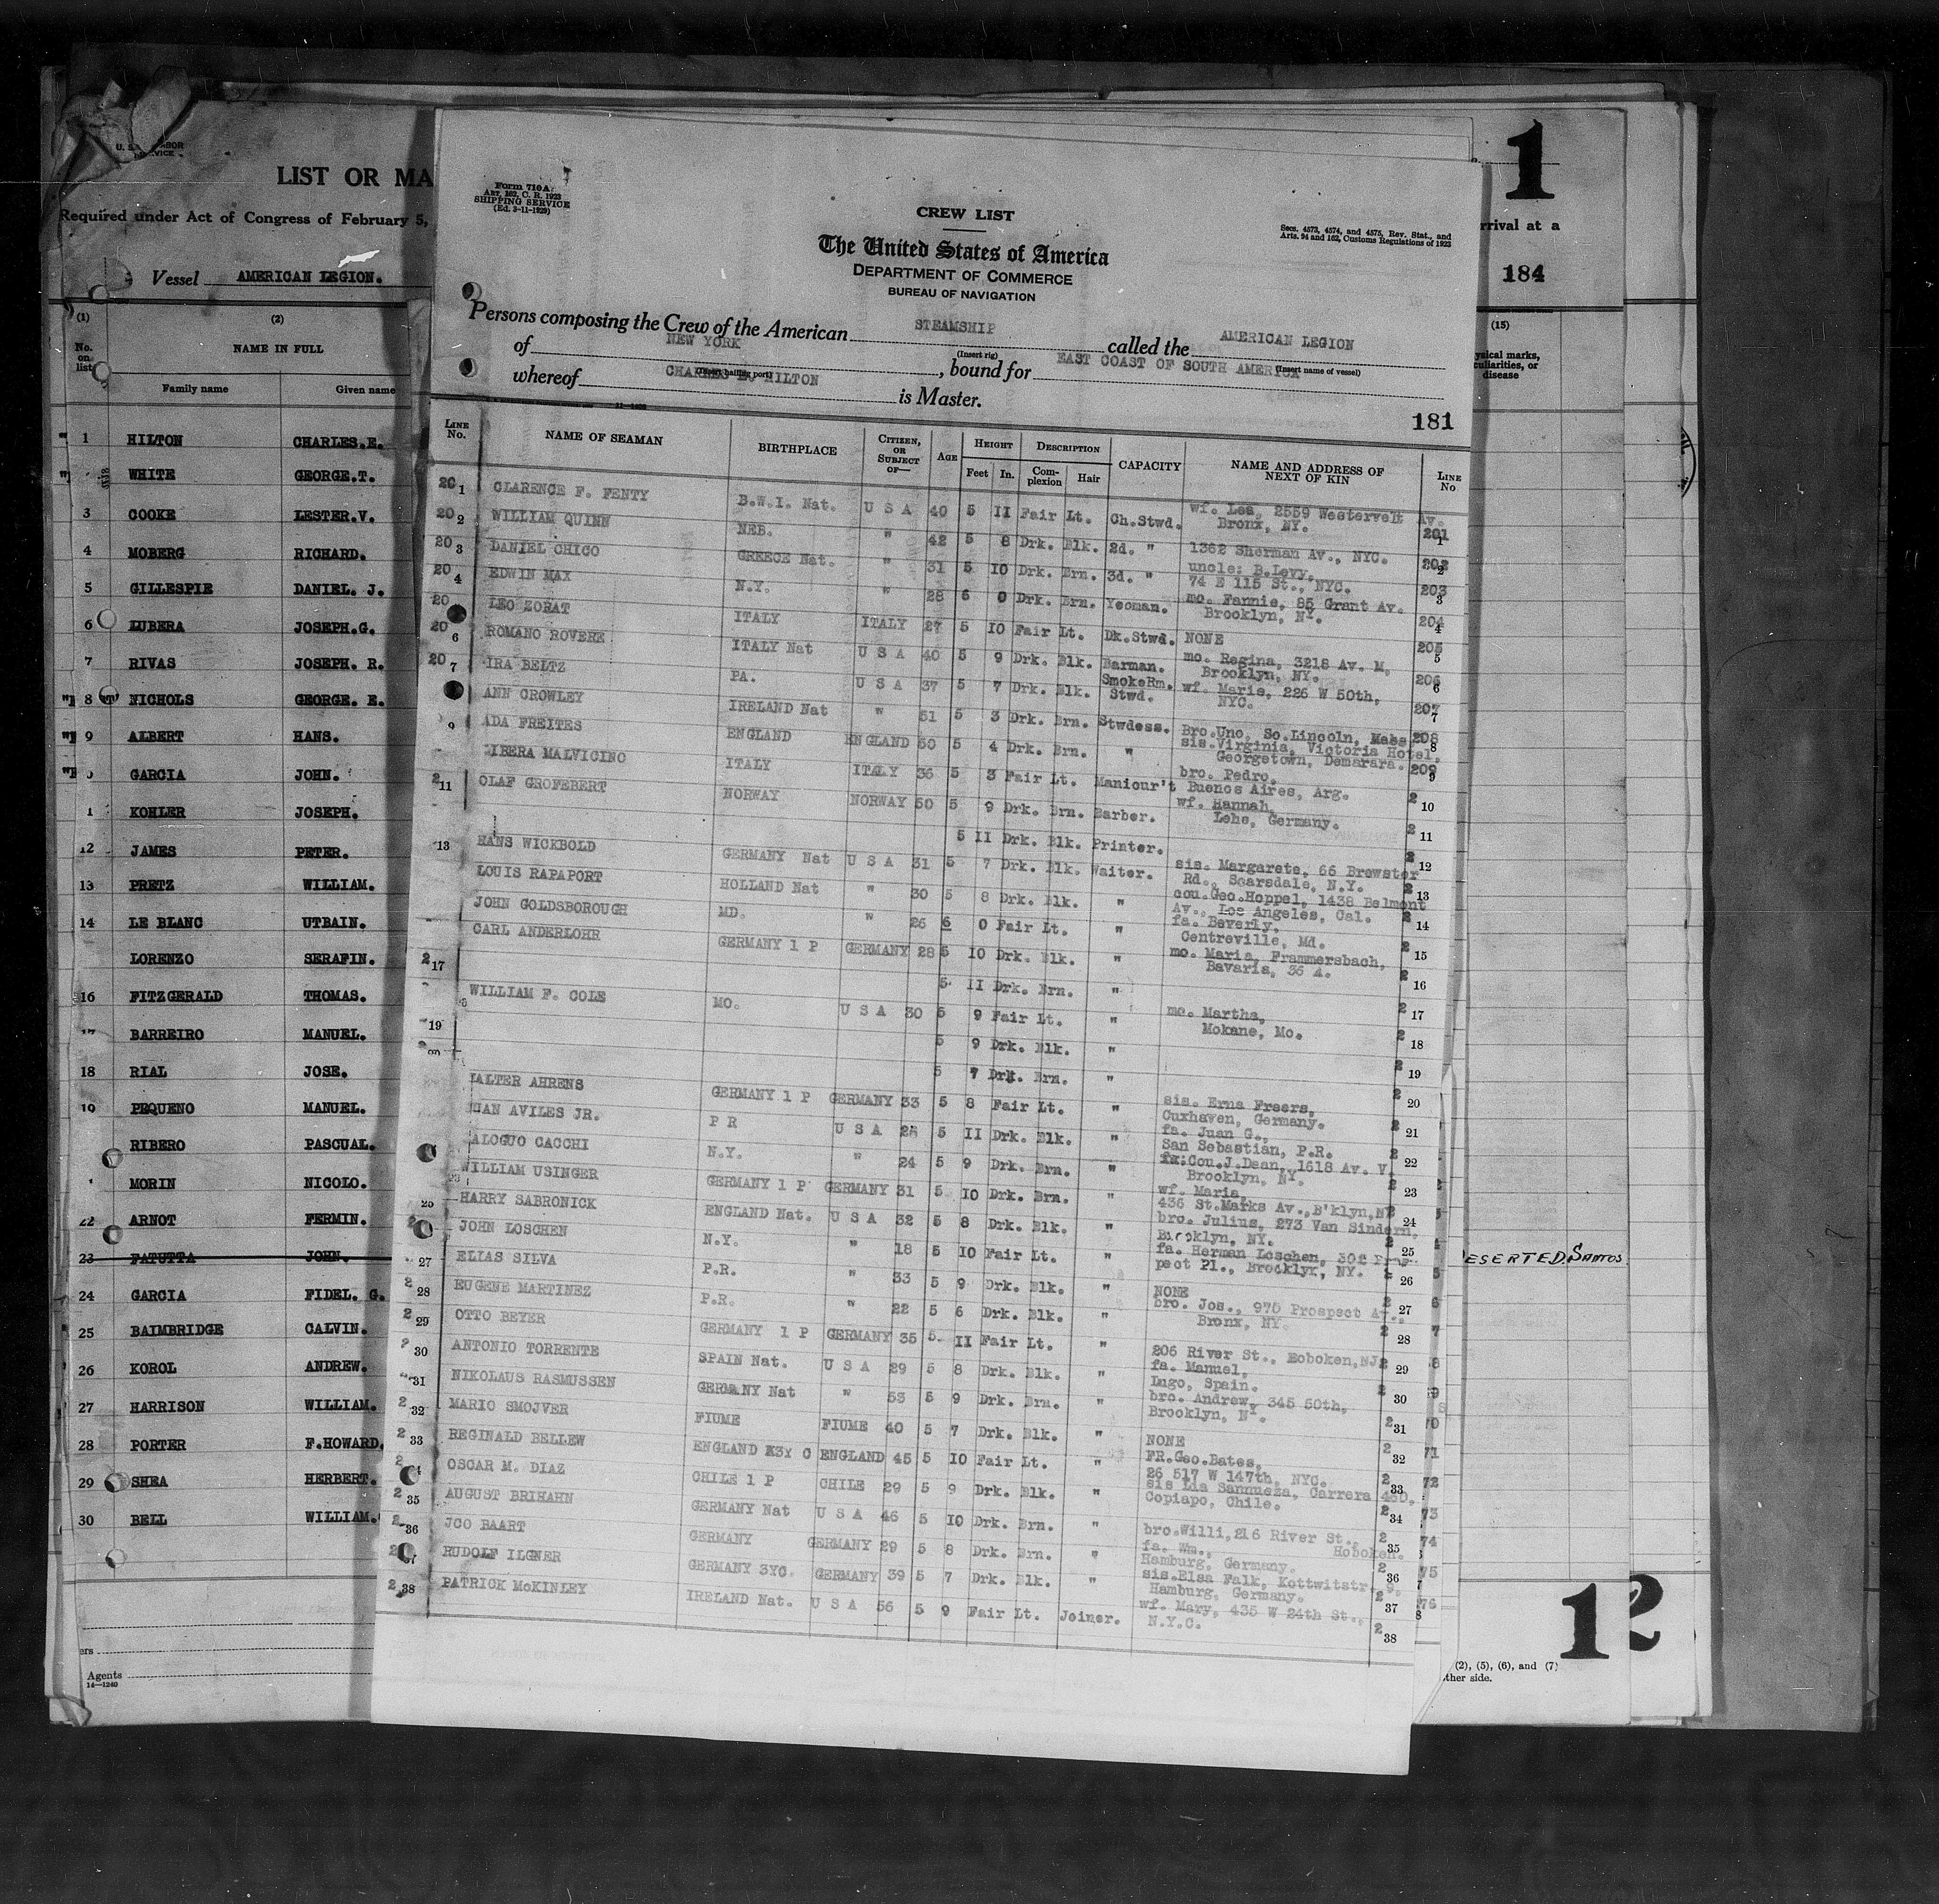 LIST OR MA
Required under Act of Congress of February 5,
Vessel AMERICAN LEGION.
(1) (2)
No. on list
NAME IN FULL
Family name Given name
1 HILTON CHARLES.E.
WHITE GEORGE.T.
3 COOKE LESTER.V.
4 MOBERG RICHARD.
5 GILLESPIE DANIEL. J.
6 LUBERA JOSEPH.G.
7 RIVAS JOSEPH. R.
8 NICHOLS GEORGE. E.
9 ALBERT HANS.
GARCIA JOHN.
1 KOHLER JOSEPH.
12 JAMES PETER.
13 PRETZ WILLIAM.
14 LE BLANC UTBAIN.
LORENZO SERAFIN.
16 FITZGERALD THOMAS.
BARREIRO MANUEL.
18 RIAL JOSE.
PEQUENO MANUEL.
RIBERO PASCUAL.
MORIN NICOLO.
22 ARNOT FERMIN.
23 FATUTTA JOHN.
24 GARCIA FIDEL. G.
25 BAIMBRIDGE CALVIN.
26 KOROL ANDREW.
27 HARRISON WILLIAM.
28 PORTER F.HOWARD.
29 SHEA HERBERT.
30 BELL WILLIAM.
ers
Agents
14—1240
Form 710A
Art. 162, C. R. 1923
SHIPPING SERVICE
(Ed. 3-11-1929)
CREW LIST
The United States of America
DEPARTMENT OF COMMERCE
BUREAU OF NAVIGATION
Secs. 4573, 4574, and 4575, Rev. Stat., and
Arts. 94 and 162, Customs Regulations of 1923
Persons composing the Crew of the American STEAMSHIP called the AMERICAN LEGION
(Insert rig) (Insert name of vessel)
of NEW YORK, bound for EAST COAST OF SOUTH AMERICA
(Insert hailing port)
whereof CHARLES E. HILTON is Master.
181
LINE No. NAME OF SEAMAN BIRTHPLACE CITIZEN, OR SUBJECT OF— AGE HEIGHT Feet In. DESCRIPTION Complexion Hair CAPACITY NAME AND ADDRESS OF NEXT OF KIN LINE No
20 1 CLARENCE F. FENTY B.W.I. Nat. U S A 40 5 11 Fair Lt. Ch.Stwd. wf. Lea, 2559 Westervelt Av. Bronx, NY. 201 1
20 2 WILLIAM QUINN NEB. " 42 5 8 Drk. Blk. 2d. " 1362 Sherman Av., NYC. 202 2
20 3 DANIEL CHICO GREECE Nat. " 31 5 10 Drk. Brn. 3d. " uncle: B.Levy, 74 E 115 St., NYC. 203 3
20 4 EDWIN MAX N.Y. " 28 6 0 Drk. Brn. Yeoman. mo. Fannie, 85 Grant Av. Brooklyn, NY. 204 4
20 LEO ZORAT ITALY ITALY 27 5 10 Fair Lt. Dk.Stwd. NONE 205 5
20 6 ROMANO ROVERE ITALY Nat U S A 40 5 9 Drk. Blk. Barman. mo. Regina, 3218 Av. M, Brooklyn, NY. 206 6
20 7 IRA BELTZ PA. U S A 37 5 7 Drk. Blk. SmokeRm. Stwd. wf. Marie, 226 W 50th, NYC. 207 7
ANN CROWLEY IRELAND Nat " 51 5 3 Drk. Brn. Stwdess. Bro.Uno, So.Lincoln, Mass 208 8
9 ADA FREITES ENGLAND ENGLAND 50 5 4 Drk. Brn. " sis.Virginia, Victoria Hotel, Georgetown, Demarara. 209 9
LIBERA MALVICINO ITALY ITALY 36 5 3 Fair Lt. Maniour't bro. Pedro, Buenos Aires, Arg. 2 10
2 11 OLAF GROFEBERT NORWAY NORWAY 50 5 9 Drk. Brn. Barber. wf. Hannah, Lehe, Germany. 2 11
5 11 Drk. Blk. Printer. 2 12
13 HANS WICKBOLD GERMANY Nat U S A 31 5 7 Drk. Blk. Waiter. sis. Margarete, 66 Brewster Rd., Scarsdale, N.Y. 2 13
LOUIS RAPAPORT HOLLAND Nat " 30 5 8 Drk. Blk. " cou.Geo.Hoppel, 1438 Belmont Av., Los Angeles, Cal. 2 14
JOHN GOLDSBOROUGH MD. " 26 6 0 Fair Lt. " fa. Beverly, Centreville, Md. 2 15
CARL ANDERLOHR GERMANY 1 P GERMANY 28 5 10 Drk. Blk. " mo. Maria, Frammersbach, Bavaria, 36 A. 2 16
2 17 5 11 Drk. Brn. " 2 17
WILLIAM F. COLE MO. U S A 30 5 9 Fair Lt. " mo. Martha, Mokane, Mo. 2 18
19 5 9 Drk. Blk. " 2 19
5 7 Drk. Brn. " 2 20
WALTER AHRENS GERMANY 1 P GERMANY 33 5 8 Fair Lt. " sis. Erna Freers, Cuxhaven, Germany. 2 21
JUAN AVILES JR. P R U S A 25 5 11 Drk. Blk. " fa. Juan G., San Sebastian, P.R. 2 22
ALOGUO CACCHI N.Y. " 24 5 9 Drk. Brn. " Cou.J.Dean, 1618 Av. V, Brooklyn, NY. 2 23
WILLIAM USINGER GERMANY 1 P GERMANY 31 5 10 Drk. Brn. " wf. Maria, 436 St.Marks Av.,B'klyn,NY 24
25 HARRY SABRONICK ENGLAND Nat. U S A 32 5 8 Drk. Blk. " bro. Julius, 273 Van Sindern, Brooklyn, NY. 2 25
JOHN LOSCHEN N.Y. " 18 5 10 Fair Lt. " fa. Herman Loschen, 302 Prospect Pl., Brooklyn, NY. 2 26
27 ELIAS SILVA P.R. " 33 5 9 Drk. Blk. " NONE 2 27
2 28 EUGENE MARTINEZ P.R. " 22 5 6 Drk. Blk. " bro. Jos., 975 Prospect Av., Bronx, NY. 2 28
2 29 OTTO BEYER GERMANY 1 P GERMANY 35 5 11 Fair Lt. " 206 River St., Hoboken,NJ 29
30 ANTONIO TORRENTE SPAIN Nat. U S A 29 5 8 Drk. Blk. " fa. Manuel, Lugo, Spain. 2 30
31 NIKOLAUS RASMUSSEN GERMANY Nat " 53 5 9 Drk. Brn. " bro. Andrew, 345 50th, Brooklyn, NY. 2 31
2 32 MARIO SMOJVER FIUME FIUME 40 5 7 Drk. Blk. " NONE 2 32
2 33 REGINALD BELLEW ENGLAND ENGLAND 45 5 10 Fair Lt. " FR.Geo.Bates, 26 517 W 147th, NYC. 2 33
OSCAR M. DIAZ CHILE 1 P CHILE 29 5 9 Drk. Blk. " sis Lia Sannueza, Carrera 46D, Copiapo, Chile. 2 34
2 35 AUGUST BRIHAHN GERMANY Nat U S A 46 5 10 Drk. Brn. " bro.Willi, 216 River St., Hoboken. 2 35
2 36 JCO BAART GERMANY GERMANY 29 5 8 Drk. Brn. " fa. Wm., Hamburg, Germany. 2 36
RUDOLF ILGNER GERMANY 3YC. GERMANY 39 5 7 Drk. Blk. " sis.Elsa Falk, Kottwitstr. 9, Hamburg, Germany. 2 37
2 38 PATRICK McKINLEY IRELAND Nat. U S A 56 5 9 Fair Lt. Joiner. wf. Mary, 435 W 24th St., N.Y.C. 2 38
1
rrival at a
184
(15)
ysical marks,
culiarities, or
disease
ESERTED. SANTOS.
12
2
(2), (5), (6), and (7)
ther side.